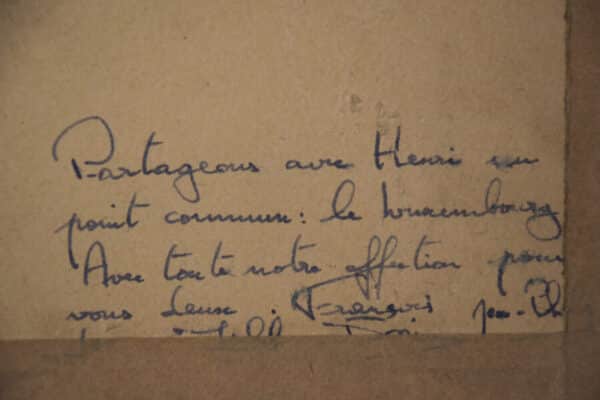 Partageons avec Henri un
point commun: le Luxembourg
Avec toute notre affection pour
vous deux. François